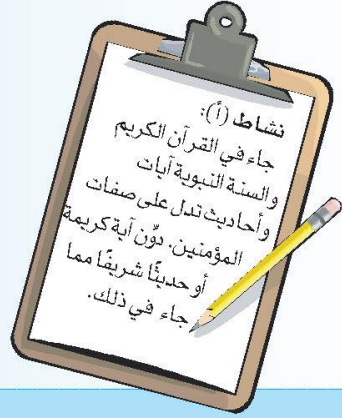 نشاط (أ):
جاء في القرآن الكريم
والسنة النبوية آيات
وأحاديث تدل على صفات
المؤمنين. دوِّن آية كريمة
أو حديثًا شريفًا مما
جاء في ذلك.